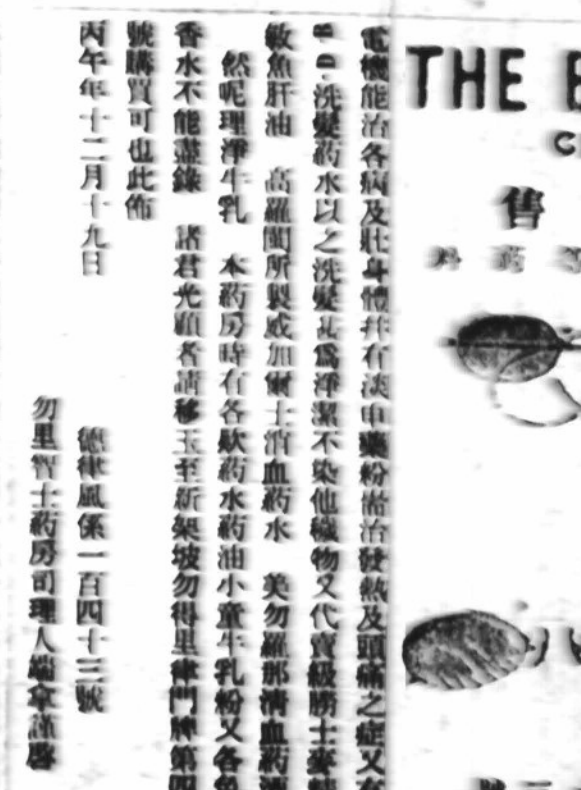 THE
售
電機能治各病及壯身體并有淡巾藥粉嵩治發熱及頭痛之症又有
B.D.洗髮葯水以之洗髮尤爲淨潔不染他穢物又代賣級勝士麥精
敏魚肝油 高羅闐所製威加爾士消血葯水 美勿羅那清血葯
然呢理淨牛乳 本葯房時有各欵葯水葯油小童牛乳粉又各色
香水不能盡錄 諸君光顧者請移玉至新架坡勿得里律門牌第四
號購買可也此佈
丙午年十二月十九日
德律風係一百四十三號
勿里智士葯房司理人端拿謹啓